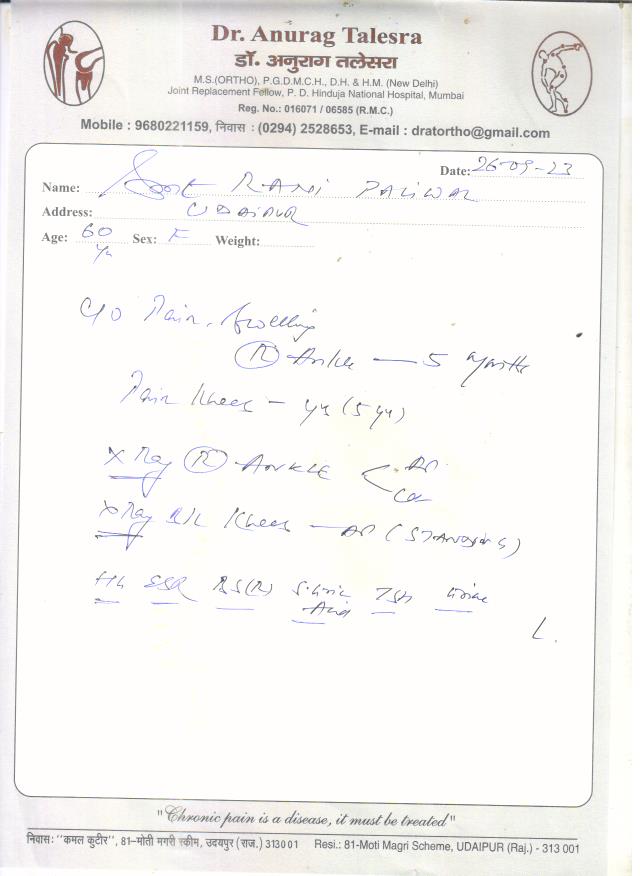 Dr. Anurag Talesra
डॉ. अनुराग तलेसरा
M.S.(ORTHO), P.G.D.M.C.H., D.H. & H.M. (New Delhi)
Joint Replacement Fellow, P. D. Hinduja National Hospital, Mumbai
Reg. No.: 016071 / 06585 (R.M.C.)
Mobile : 9680221159, निवास : (0294) 2528653, E-mail : dratortho@gmail.com
Date: 26-09-23
Name: RANI PALIWAL
Address: UDAIPUR
Age: 60 Yr Sex: F Weight:
C/O Pain, Swelling
(R) Ankle — 5 months
Pain Knees – yrs (5 yr)
X Ray (R) ANKLE < AP
X Ray B/L Knees — AP (STANDING)
Hb ESR BS(R) S. Uric Acid TSH Urine
"Chronic pain is a disease, it must be treated"
निवास: "कमल कुटीर", 81-मोती मगरी स्कीम, उदयपुर (राज.) 313001 Resi.: 81-Moti Magri Scheme, UDAIPUR (Raj.) - 313 001